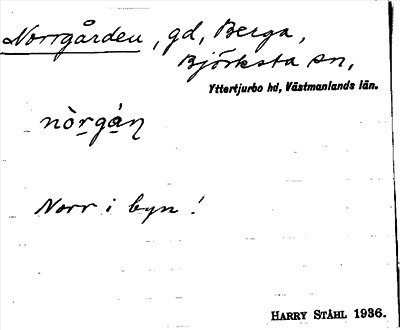 Norrgården, gd, Berga,
Björksta sn,
Yttertjurbo hd, Västmanlands län.
nòrgáṇ
Norr i byn!
HARRY STÅHL 1936.